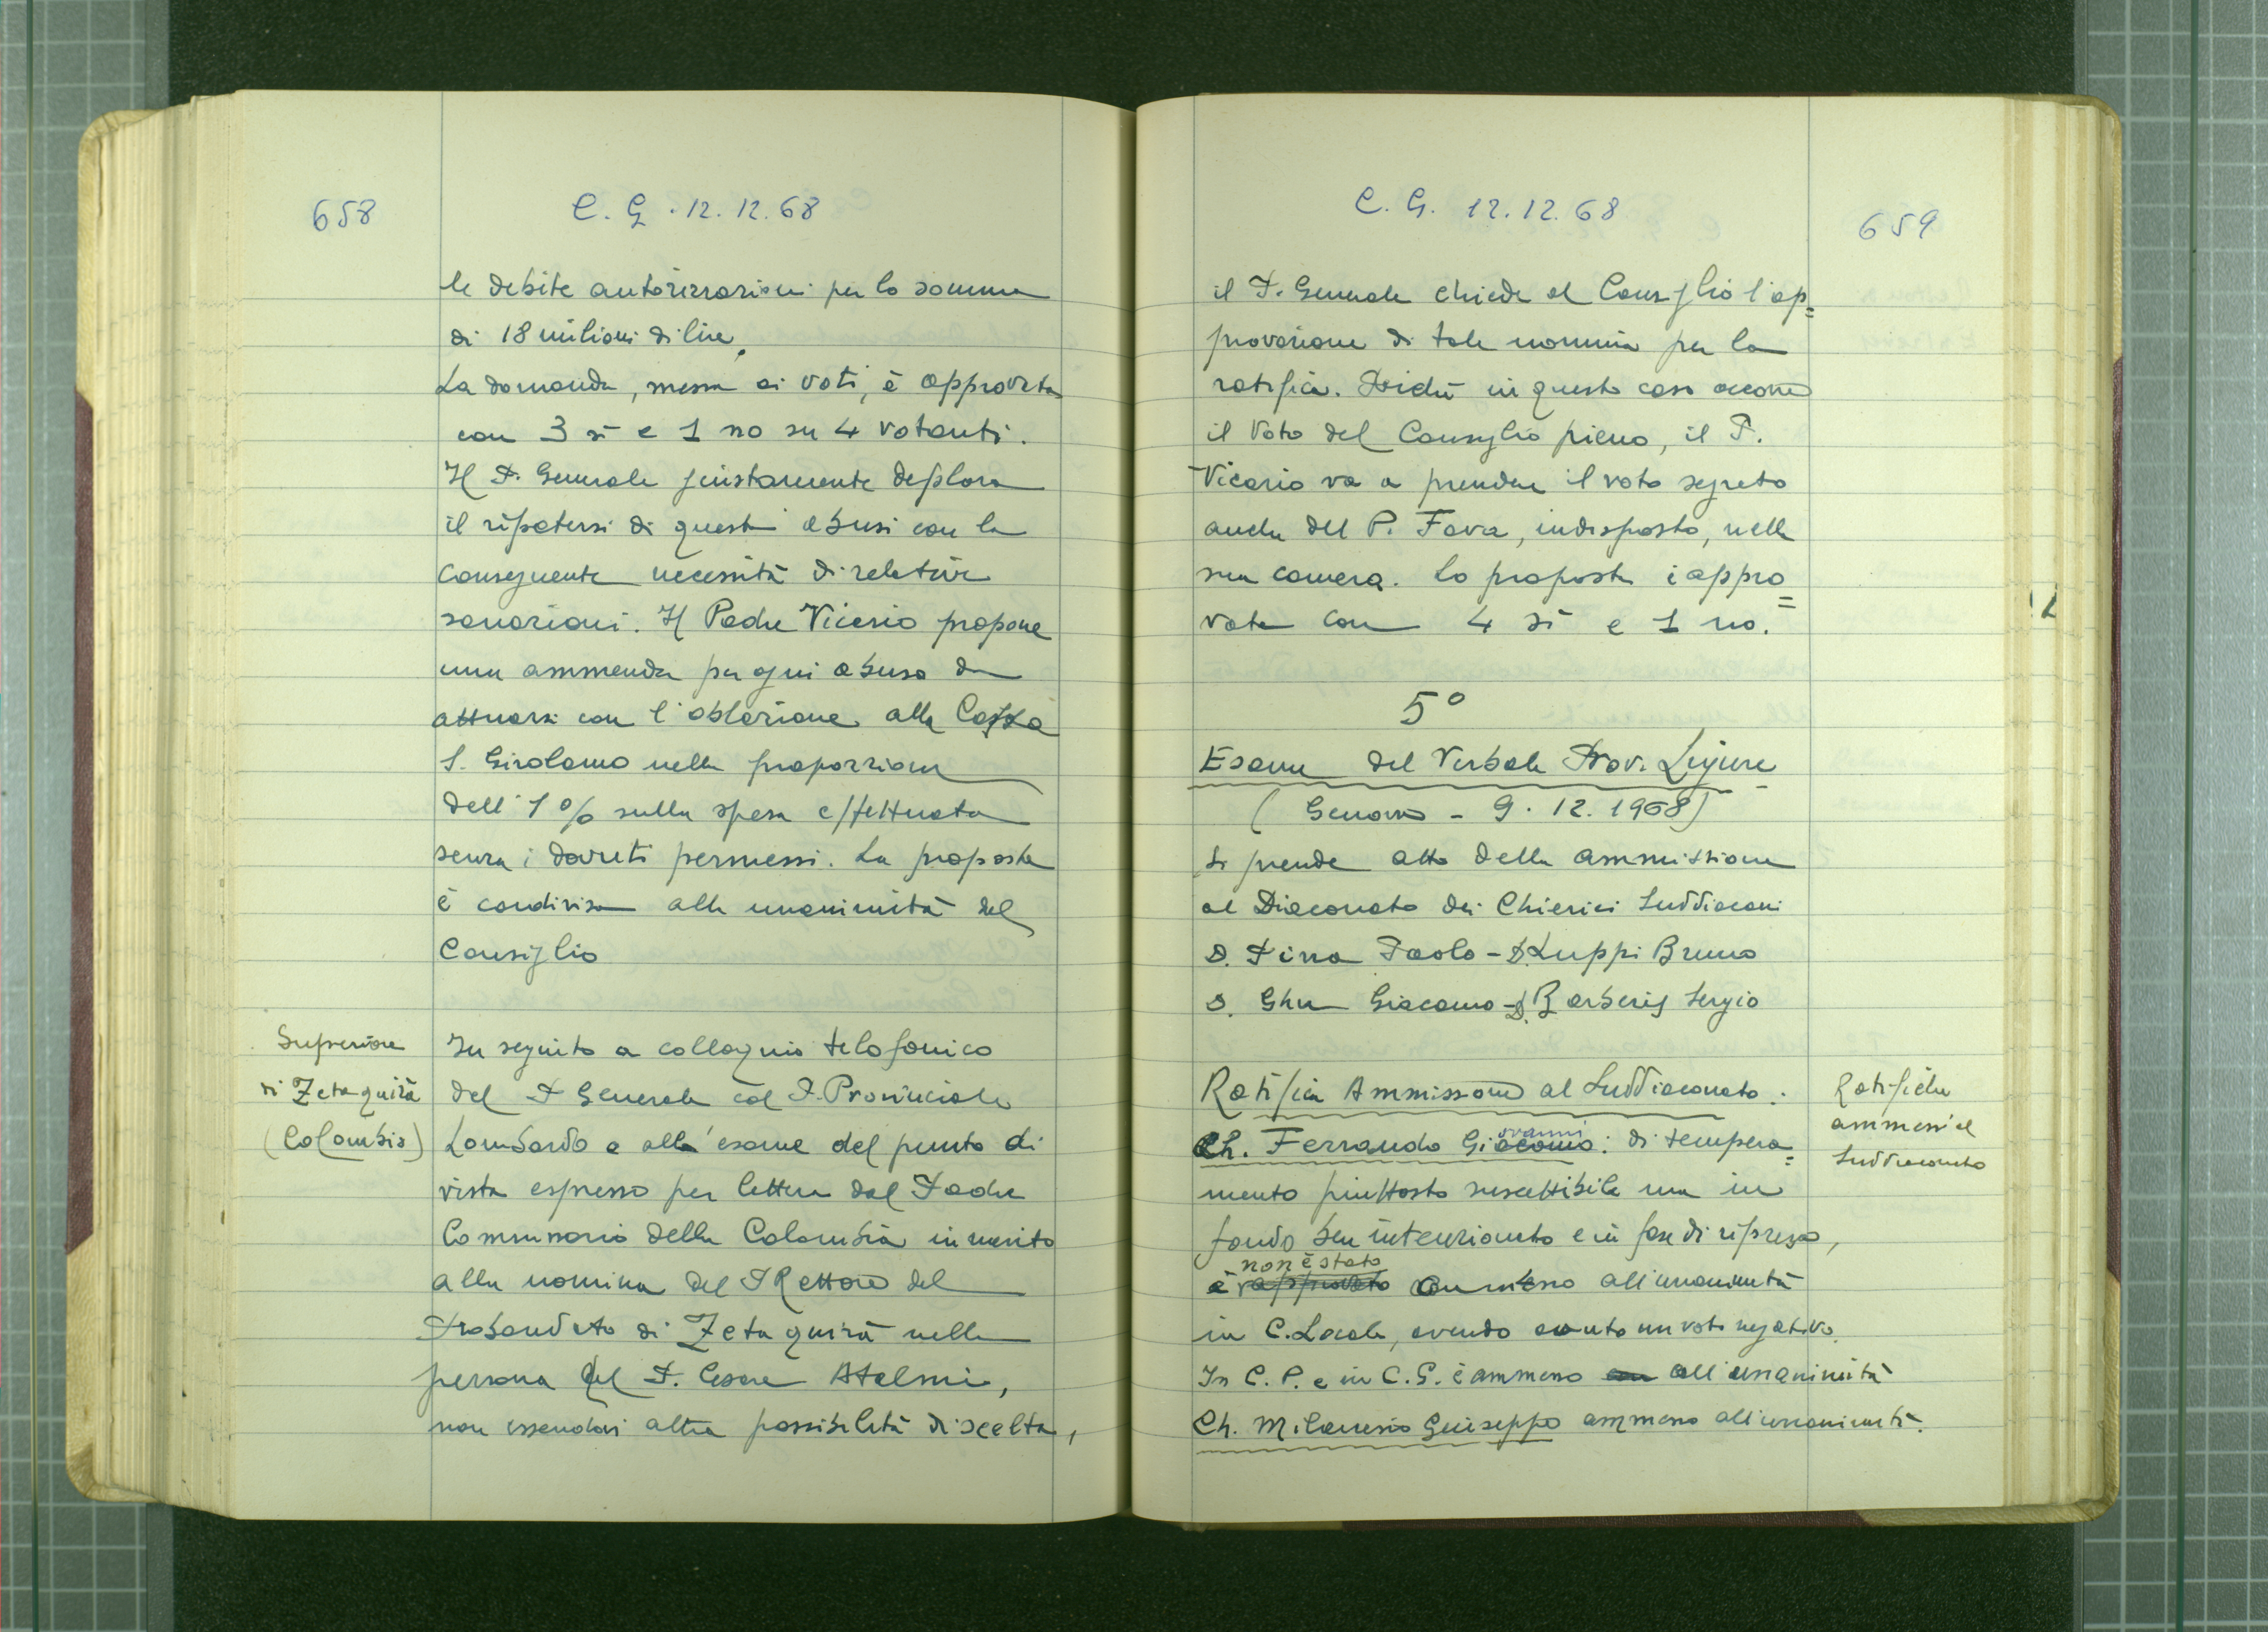 658
C. G. 12.12.68
le debite autorizzazioni per la somma
di 18 milioni di lire.
La domanda, messa ai voti, è approvata
con 3 sì e 1 no su 4 votanti.
Il P. Generale giustamente deplora
il ripetersi di questi abusi con la
conseguente necessità di relative
sanazioni. Il Padre Vicario propone
una ammenda per ogni abuso da
attuarsi con l'oblazione alla Cassa
S. Girolamo nella proporzione
dell'1% sulla spesa effettuata
senza i dovuti permessi. La proposta
è condivisa alla unanimità del
Consiglio
Superiore
di Zetaquirà
(Colombia)
In seguito a colloquio telefonico
del P. Generale col P. Provinciale
Lombardo e alla esame del punto di
vista espresso per lettera dal Padre
Commissario della Colombia in merito
alla nomina del P. Rettore del
Probandato di Zetaquirà nella
persona del P. Cesare Atelmi,
non essendovi altra possibilità di scelta,
C. G. 12.12.68
659
il P. Generale chiede al Consiglio l'ap=
provazione di tale nomina per la
ratifica. Poichè in questo caso occorre
il voto del Consiglio pieno, il P.
Vicario va a prendere il voto segreto
anche del P. Fava, indisposto, nella
sua camera. La proposta è appro=
vata con 4 sì e 1 no.
5°
Esame del Verbale Prov. Ligure
(Genova - 9.12.1968)
Si prende atto della ammissione
al Diaconato dei Chierici Suddiaconi
D. Pirra Paolo - D. Luppi Bruno
D. Ghu Giacomo - D. Barberis Sergio
Ratifica Ammissione al Suddiaconato:
Ratifiche
ammessi al
Suddiaconato
ovanni
Ch. Ferrando Giacomo: di tempera=
mento piuttosto suscettibile ma in
fondo ben intenzionato e in fase di ripresa,
non è stato
è approvato ammesso all'unanimità
in C. Locale, avendo avuto un voto negativo.
In C. P. e in C. G. è ammesso all'unanimità
Ch. Milanesio Giuseppe ammesso all'unanimità.